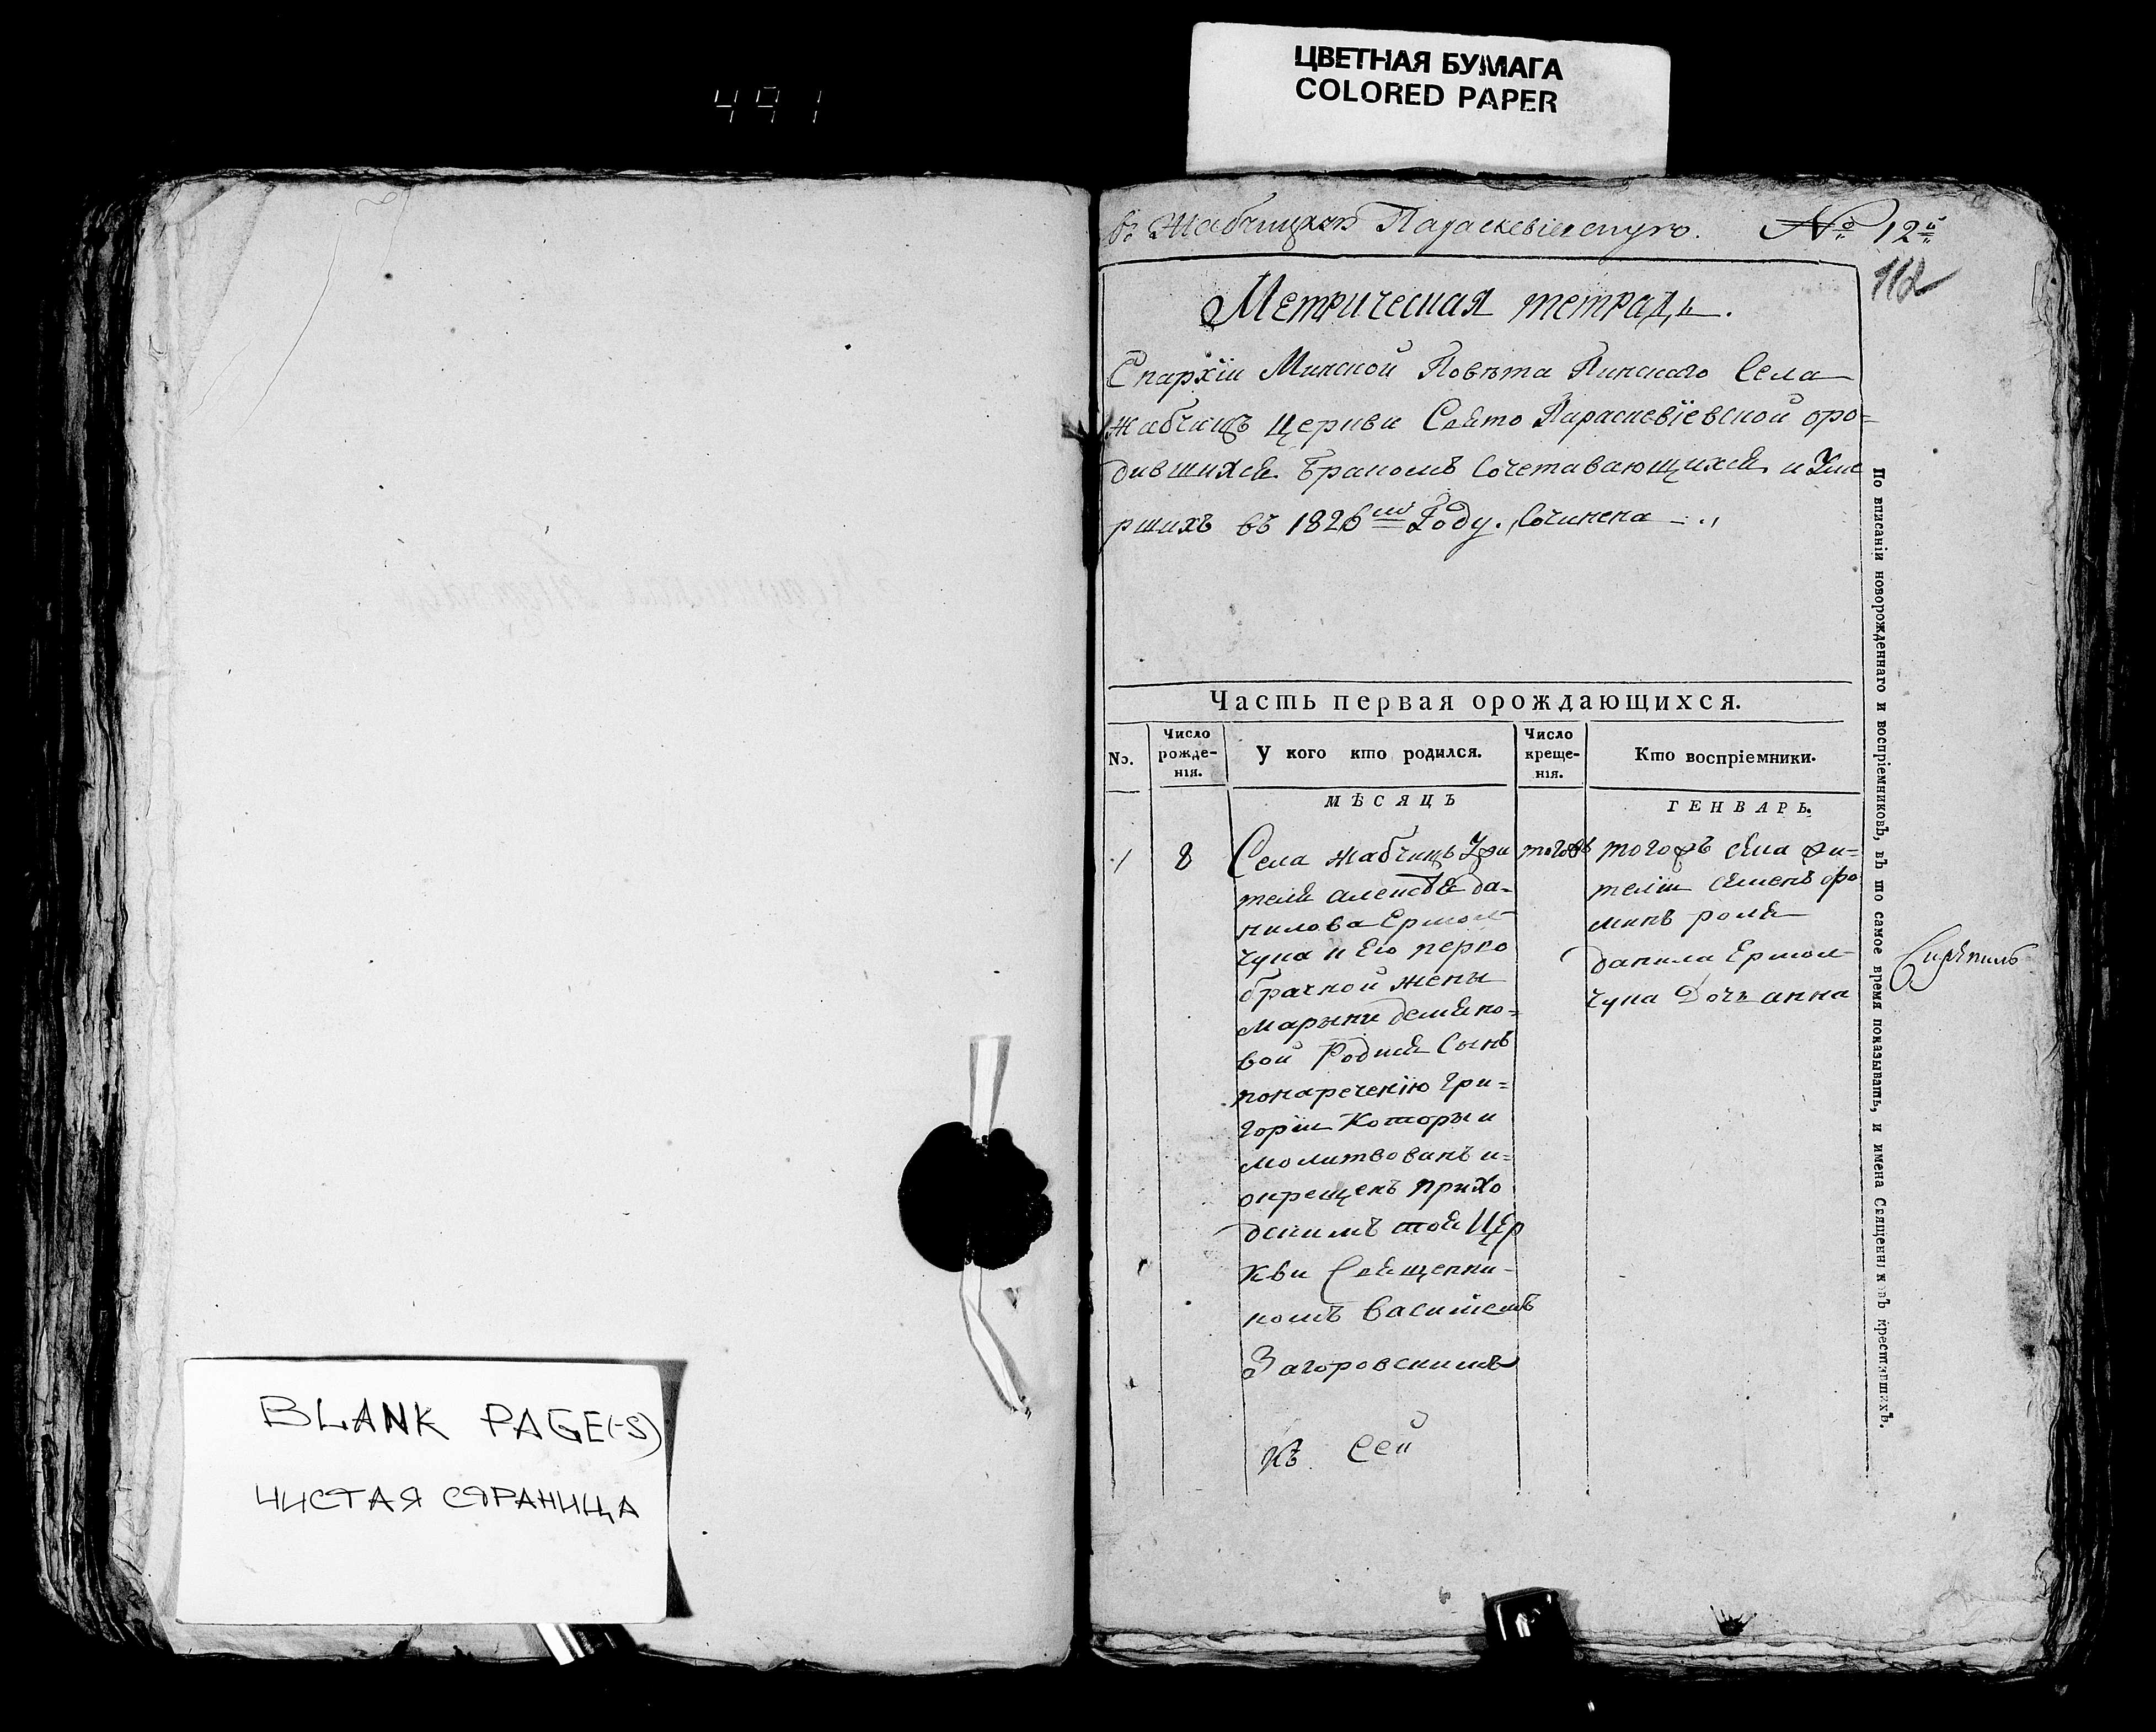 491
ЦВЕТНАЯ БУМАГА
COLORED PAPER
BLANK PAGE(-S)
ЧИСТАЯ СТРАНИЦА
въ Жабчицкѣ Параскевіевскую. № 12й
112
Метрическая тетрадь.
Епархїи Минской Повѣта Пинскаго Села
жабчицъ Церкви Свято Параскевїевской оро-
дившихся Бракомъ Сочетавающихся и Уме
ршихъ въ 1826мъ Году. Сочинена
Часть первая орождающихся.
No. Число рожде-нія. У кого кто родился. Число креще-нія. Кто воспріемники.
МѢСЯЦЪ ГЕНВАРЬ.
1 8
Села жабчицъ Жи
теля алексѣя да-
нилова Ермол
чука и Его перво
брачной жены
марыни демяно-
вой Родися Сынъ
понареченію Гри-
горїи Которыи
молитвованъ и
окрещенъ прихо
дскимъ тоя Цер
кви Священни-
комъ Василіемъ
Загоровскимъ
тогожъ
тогожъ села жи-
телїи Семенъ
данила Ермол
чука Дочъ анна
Къ Сей
По вписаніи новорожденнаго и воспріемниковъ, въ то самое время показывать, и имена Священниковъ крестившихъ.
Скрѣпилъ